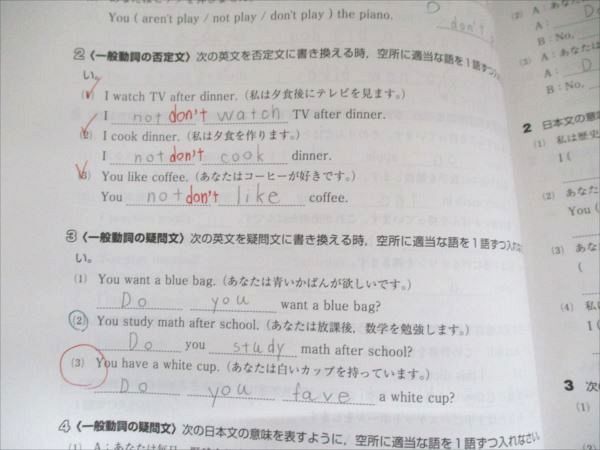 You ( aren't play / not play / don't play ) the piano.
don't
② 〈一般動詞の否定文〉次の英文を否定文に書き換える時，空所に適当な語を1語ずつ入
い。
(1) I watch TV after dinner.（私は夕食後にテレビを見ます。）
I not don't watch TV after dinner.
(2) I cook dinner.（私は夕食を作ります。）
I not don't cook dinner.
(3) You like coffee.（あなたはコーヒーが好きです。）
You not don't like coffee.
③ 〈一般動詞の疑問文〉次の英文を疑問文に書き換える時，空所に適当な語を1語ずつ入れな
い。
(1) You want a blue bag.（あなたは青いかばんが欲しいです。）
Do you want a blue bag?
(2) You study math after school.（あなたは放課後，数学を勉強します。）
Do you study math after school?
(3) You have a white cup.（あなたは白いカップを持っています。）
Do you fave a white cup?
④ 〈一般動詞の疑問文〉次の日本文の意味を表すように，空所に適当な語を1語ずつ入れなさい。
(2) A：
B：No,
(3) A：あなたは
A： D
B：No.
2 日本文の意味
(1) 私は歴史
I (
(2) あなた
You (
(3) あなた
(
(4) 私は
I (
3 次の
(1)